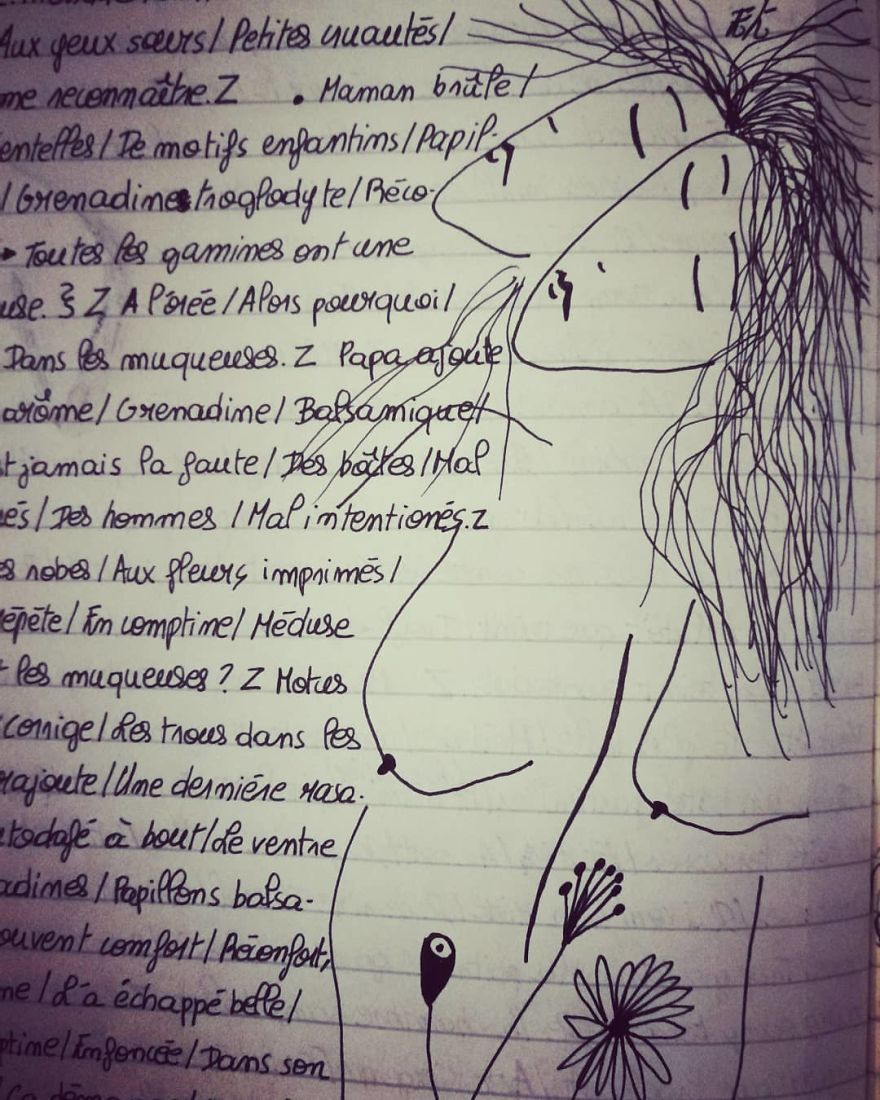 Aux yeux sœurs/Petites cruautés/
me reconnaître.Z . Maman brûle/
entelles/De motifs enfantins/Papil-
/Grenadine troglodyte/Réco-
Toutes les gamines ont une
use. Z A l'orée/Alors pourquoi/
Dans les muqueuses.Z Papa ajoute
arôme/Grenadine/Balsamique/
t jamais la faute/Des boîtes/Mal
és/Des hommes/Mal intentionés.Z
es robes/Aux fleurs imprimés/
épète/En comptine/Méduse
les muqueuses? Z Motus
corrige/Les trous dans les
rajoute/Une derniére rasa.
todafé à bout/Le ventre
adines/Papillons balsa-
ouvent comfort/Réconfort,
me/L'a échappé belle/
ptime/Enfoncée/Dans son